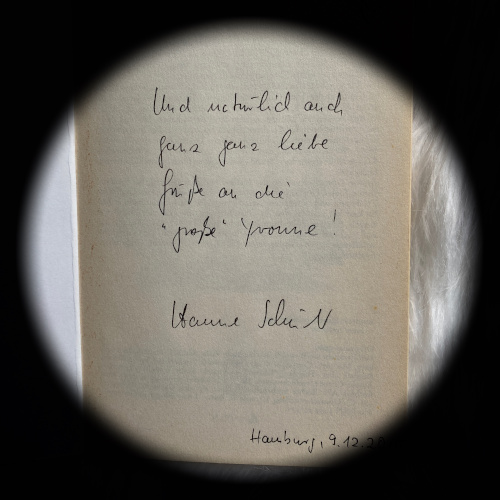 Und natürlich auch
ganz ganz liebe
Grüße an die
"große" Yvonne!
Hanne
Hamburg, 9.12.